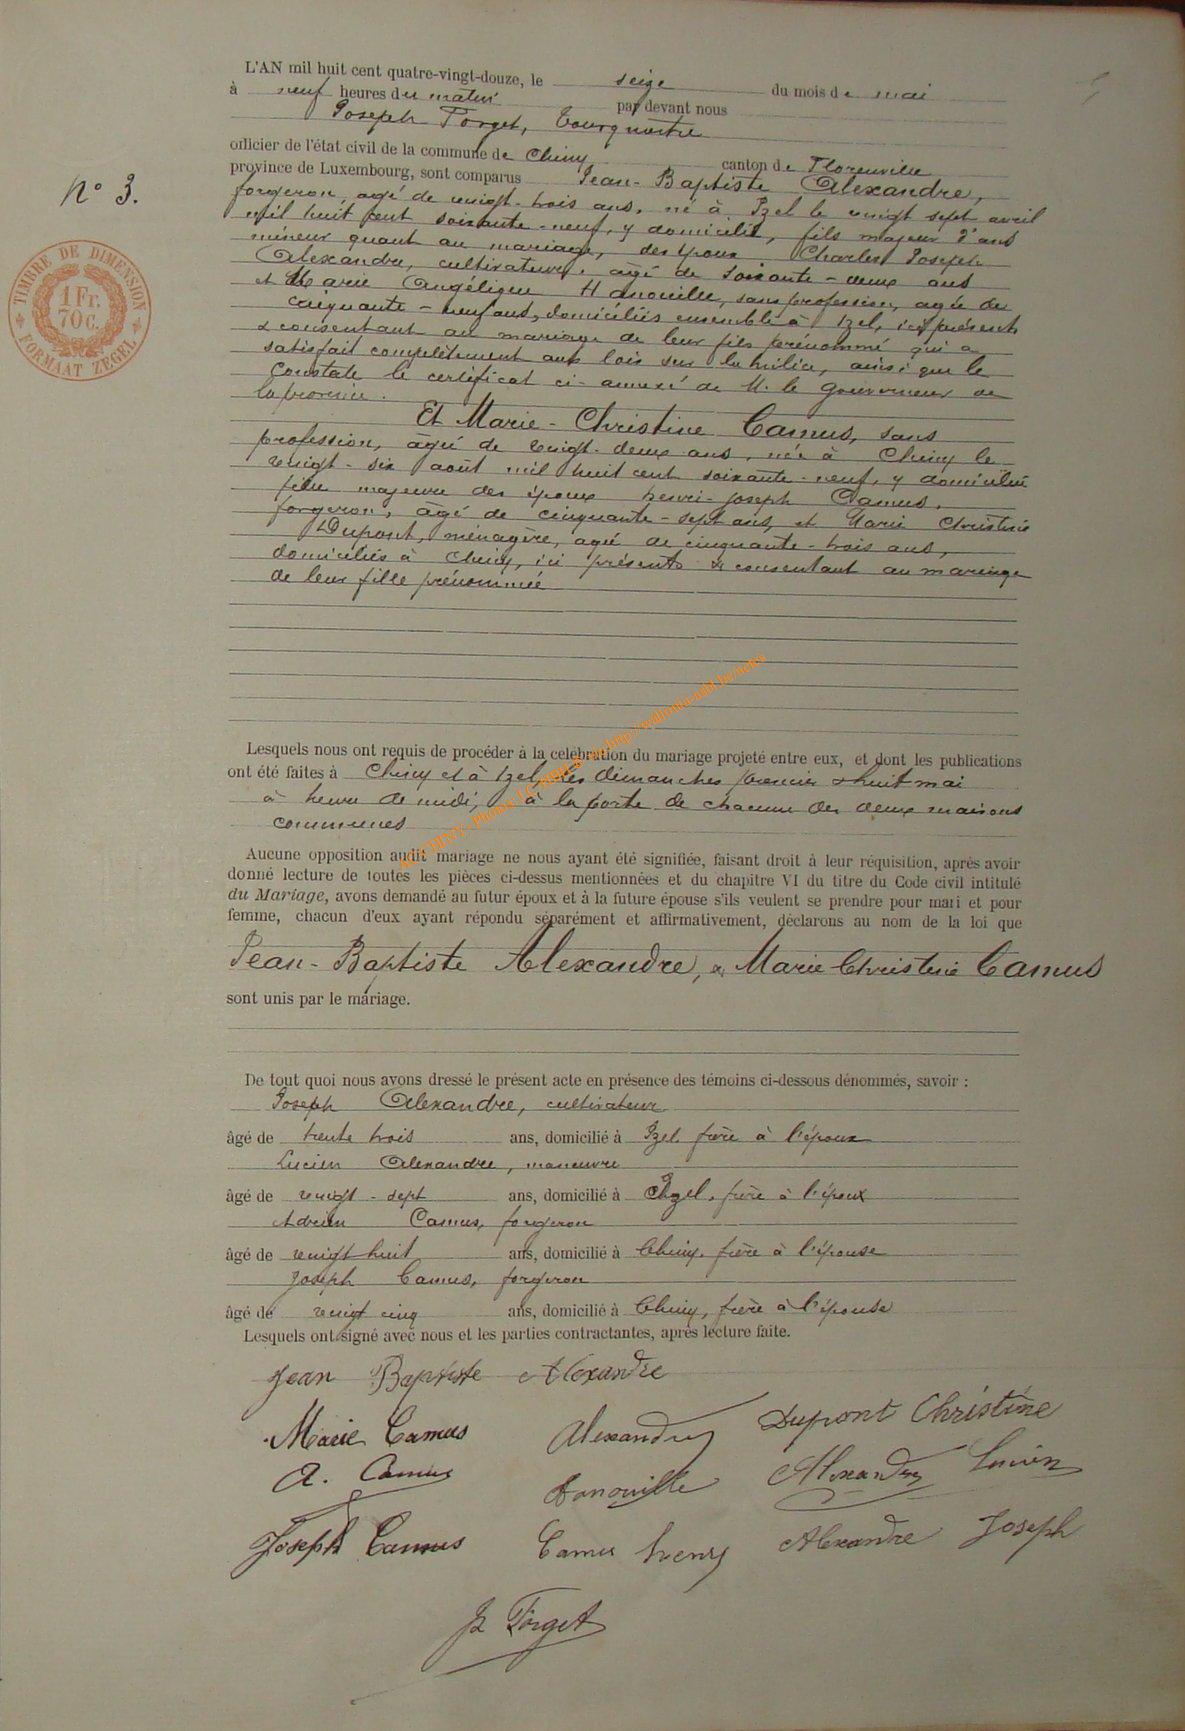 L'AN mil huit cent quatre-vingt-douze, le seize du mois de mai
à neuf heures du matin par devant nous
Joseph Forget, Bourgmestre
officier de l'état civil de la commune de Chiny canton de Florenville
province de Luxembourg, sont comparus Jean-Baptiste Alexandre,
N° 3.
forgeron, agé de vingt-trois ans, né à Izel le vingt sept avril
mil huit cent soixante-neuf, y domicilié, fils majeur d'ans
mineur quant au mariage, des époux Charles Joseph
Alexandre, cultivateur, âgé de soixante-deux ans
et Marie Angélique Hanouille, sans profession, agée de
cinquante-neuf ans, domiciliés ensemble à Izel, ici présents
& consentant au mariage de leur fils prénommé qui a
satisfait complètement aux lois sur la milice, ainsi que le
constate le certificat ci-annexé de M. le Gouverneur de
la province.
Et Marie-Christine Camus, sans
profession, âgée de vingt-deux ans, née à Chiny le
vingt-six août mil huit cent soixante-neuf, y domiciliée
fille majeure des époux henri-Joseph Camus,
forgeron, âgé de cinquante-sept ans, et Marie Christine
Dupont, ménagère, agée de cinquante-trois ans,
domiciliés à Chiny, ici présents & consentant au mariage
de leur fille prénommée
TIMBRE DE DIMENSION
1 Fr.
70 C.
FORMAAT ZEGEL
Lesquels nous ont requis de procéder à la célébration du mariage projeté entre eux, et dont les publications
ont été faites à Chiny et à Izel, les dimanches premier & huit mai
à heure de midi, à la porte de chacune des deux maisons
communes
Aucune opposition audit mariage ne nous ayant été signifiée, faisant droit à leur réquisition, après avoir
donné lecture de toutes les pièces ci-dessus mentionnées et du chapitre VI du titre du Code civil intitulé
du Mariage, avons demandé au futur époux et à la future épouse s'ils veulent se prendre pour mari et pour
femme, chacun d'eux ayant répondu séparément et affirmativement, déclarons au nom de la loi que
Jean-Baptiste Alexandre, & Marie Christine Camus
sont unis par le mariage.
De tout quoi nous avons dressé le présent acte en présence des témoins ci-dessous dénommés, savoir :
Joseph Alexandre, cultivateur
âgé de trente trois ans, domicilié à Izel frère à l'époux
Lucien Alexandre, manœuvre
âgé de vingt-sept ans, domicilié à Izel, frère à l'époux
Adrien Camus, forgeron
âgé de vingt huit ans, domicilié à Chiny, frère à l'épouse
Joseph Camus, forgeron
âgé de vingt cinq ans, domicilié à Chiny, frère à l'épouse
Lesquels ont signé avec nous et les parties contractantes, après lecture faite.
Jean Baptiste Alexandre
Marie Camus Alexandre Dupont Christine
A. Camus Hanouille Alexandre Lucien
Joseph Camus Camus henry Alexandre Joseph
J Forget